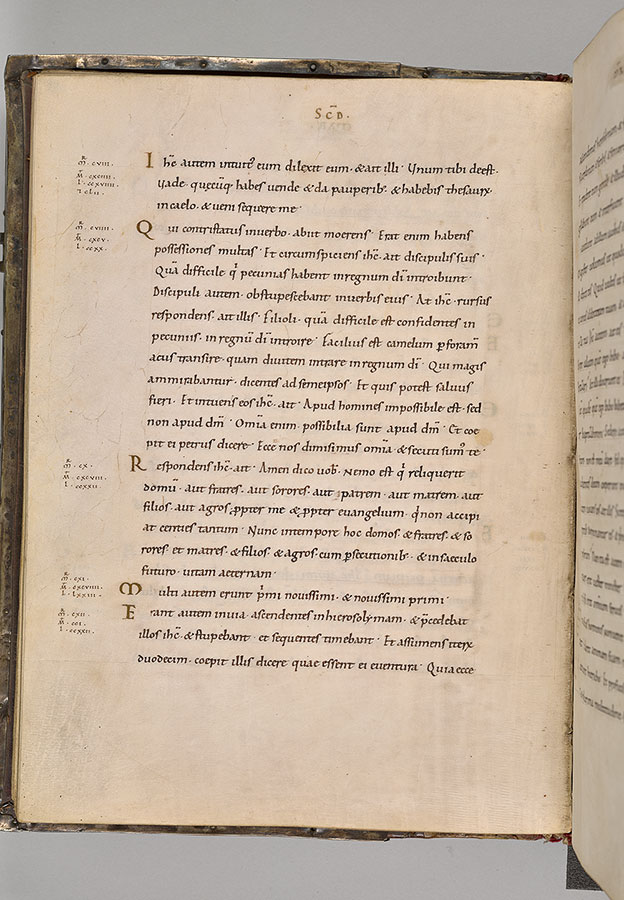 SCD̄·
R
M̄ · CVIII ·
M̄ · CXCIIII ·
L · CCXVIIII
R
M̄ · CVIIII ·
M̄ · CXCV ·
L · CCXX ·
Ihc̄ autem intuitꝰ eum dilexit eum · & ait illi · Unum tibi deest ·
Uade · quęcūq; habes uende & da pauperib; & habebis thesaurū
in caelo · & ueni sequere me ·
Qui contristatus in uerbo · abiit moerens · Erat enim habens
possessiones multas · Et circumspiciens ihc̄ · ait discipulis suis ·
Quā difficile q̇ pecunias habent in regnum dī introibunt ·
Discipuli autem · obstupescebant in uerbis eius · At ihc̄ · rursus
respondens · ait illis · Filioli · quā difficile est confidentes in
pecuniis · in regnū dī introire · Facilius est camelum ꝑ foramē
acus transire · quam diuitem intrare in regnum dī · Qui magis
ammirabantur · dicentes ad semeipsos · Et quis potest saluus
fieri · Et intuens eos ihc̄ · ait · Apud homines impossibile est · sed
non apud dm̄ · Omīa enim possibilia sunt apud dm̄ · Et coe
pit ei petrus dicere · Ecce nos dimisimus omīa & secuti sumꝰ te ·
R
M̄ · CX ·
M̄ · CXCVIII ·
L · CCXXII ·
Respondens ihc̄ · ait · Amen dico uob̄ · Nemo est q̇ reliquerit
domū · aut fratres · aut sorores · aut patrem · aut matrem · aut
filios · aut agros ꝓpter me & ꝓpter euangelium · q̇ non accipi
at centies tantum · Nunc in tempore hoc domos & fratres · & so
rores · et matres · & filios · & agros · cum ꝑsecutionib; · & in saeculo
futuro · uitam aeternam ·
R
M̄ · CXI ·
M̄ · CXCVIIII ·
L · LXXIII ·
Multi autem erunt p̍mi nouissimi · & nouissimi primi ·
R
M̄ · CXII ·
M̄ · CCI ·
L · CCXXII ·
Erant autem in uia · ascendentes in hierosolymam · & p̄cedebat
illos ihc̄ · & stupebant · et sequentes timebant · Et assumens iterū
duodecim · coepit illis dicere quae essent ei euentura · Quia ecce